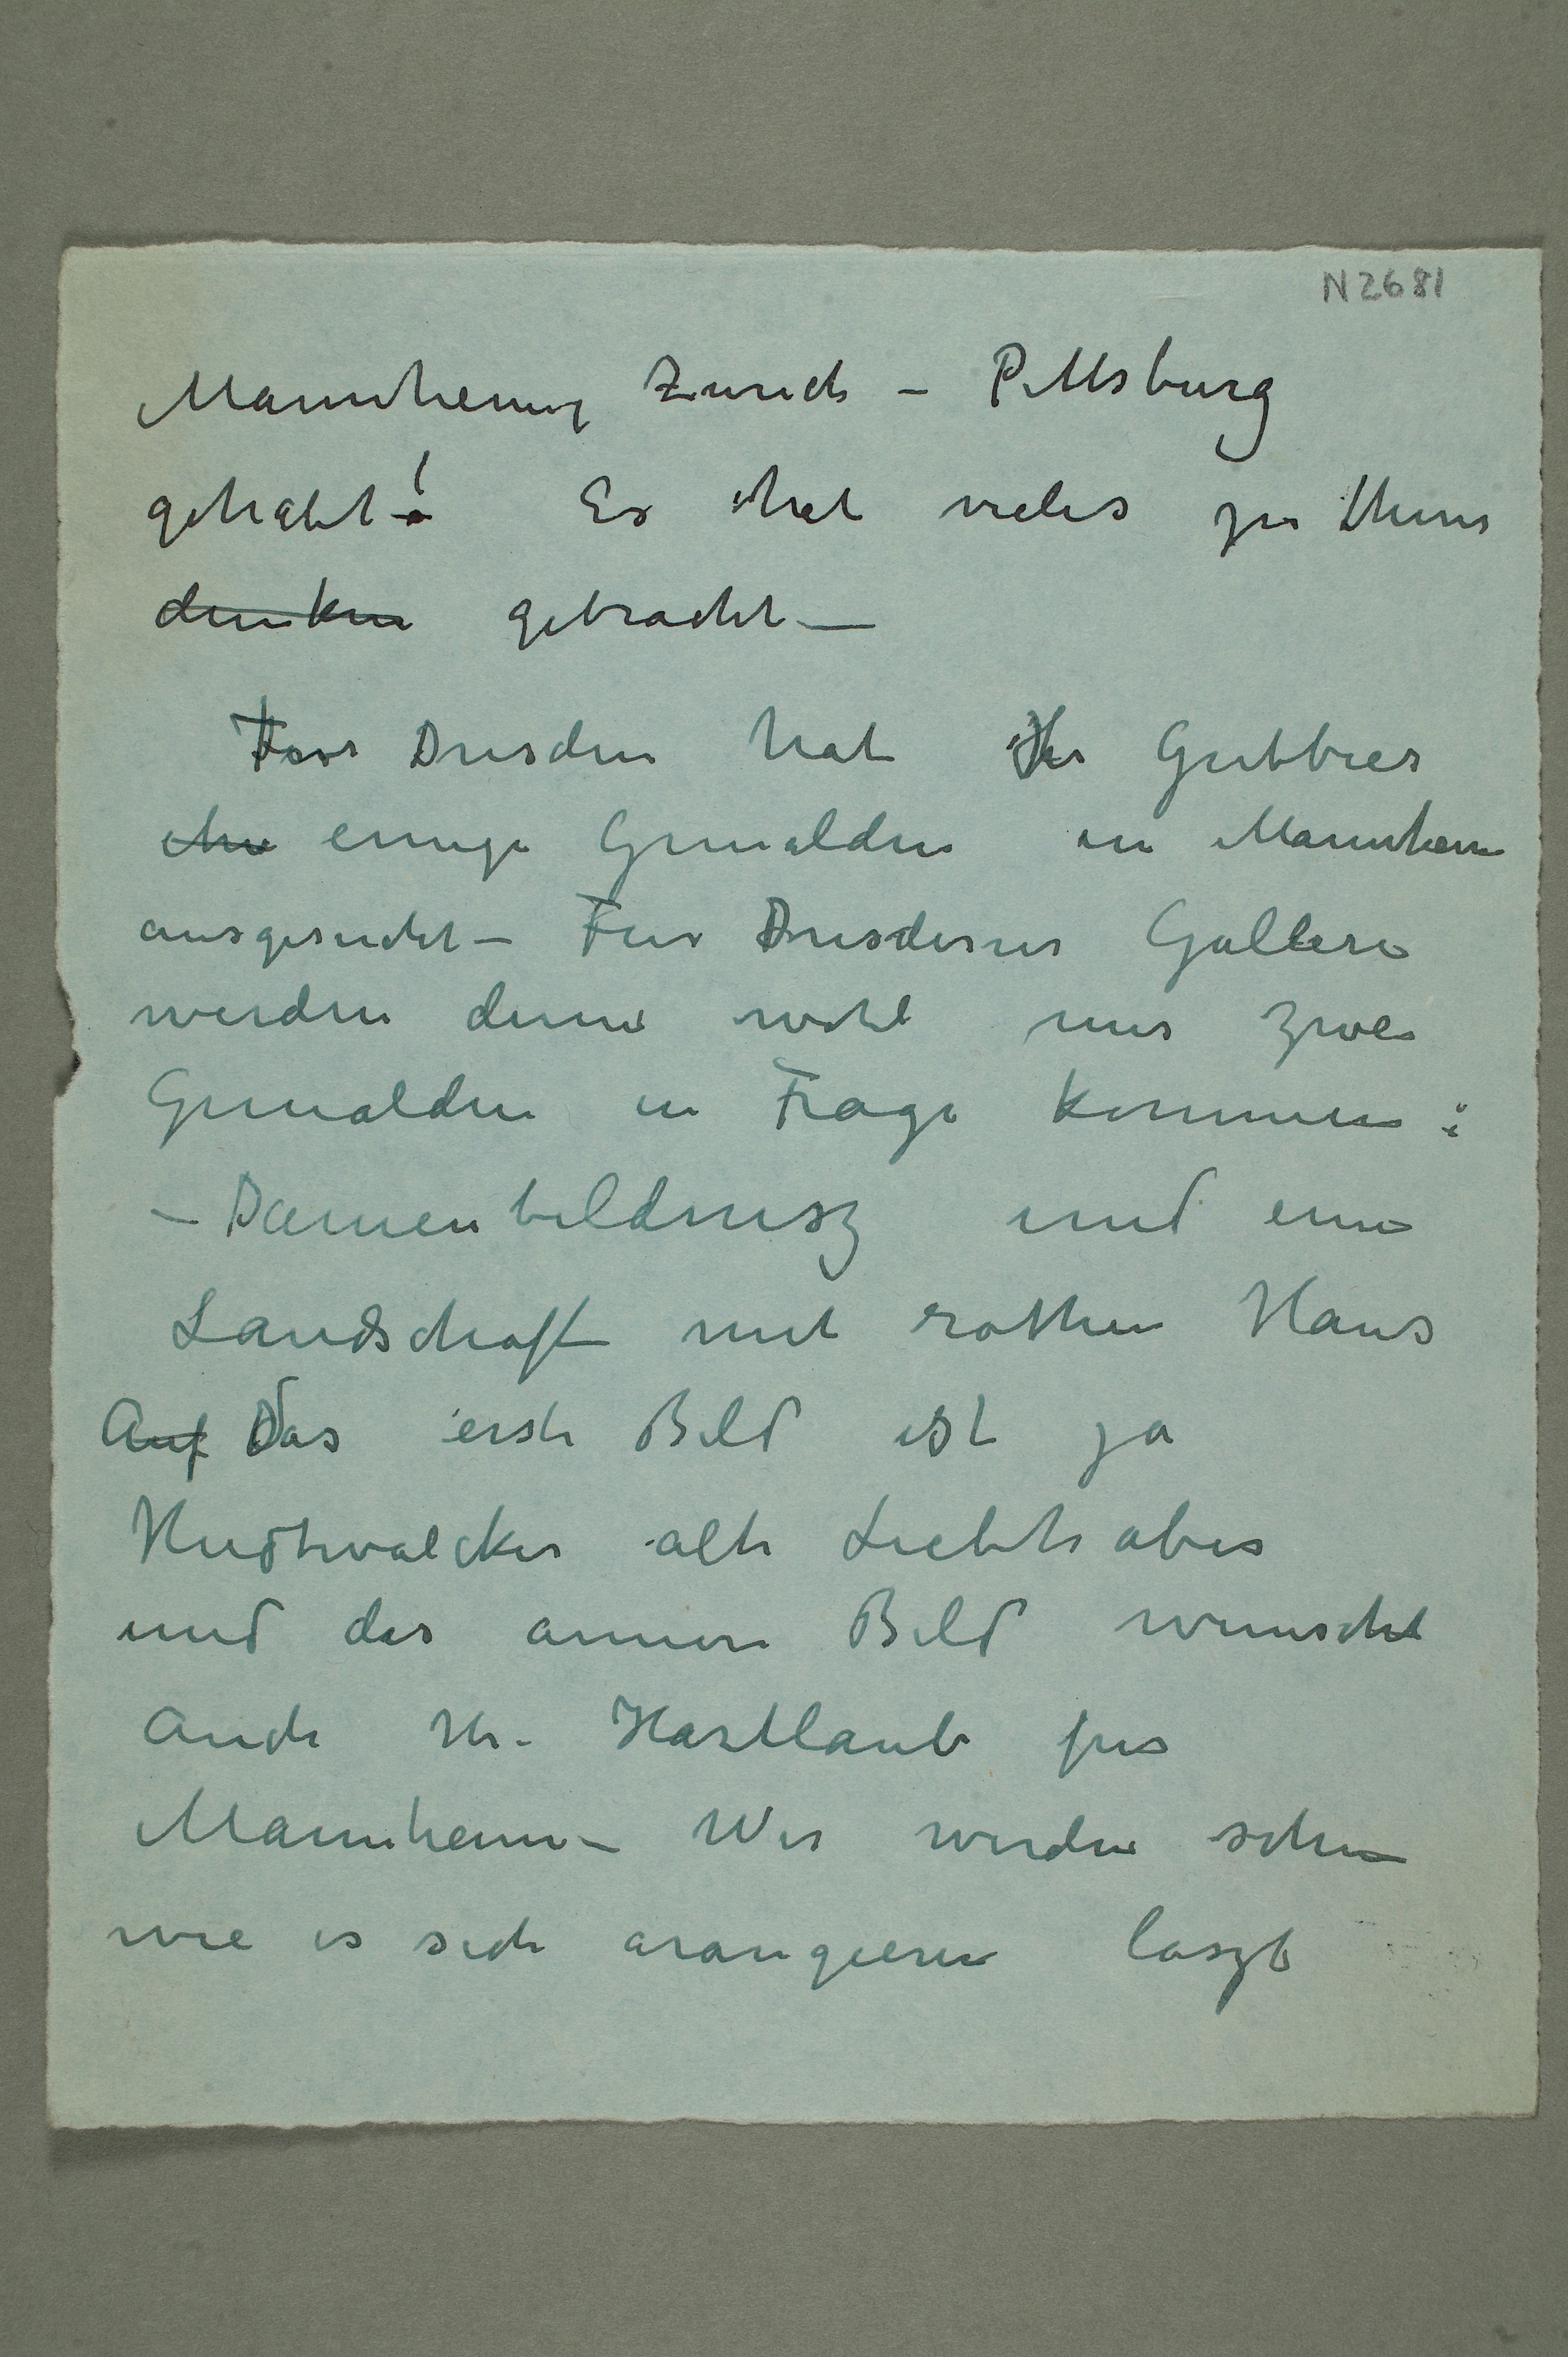 N 2681
Mannheim, Zurich – Pittsburg
gehabt! Es hat vieles zu thun
denken gebracht –
Fur Dresden hat Hr Gutbier
ihn einige Gemälden in Mannheim
ausgesucht – Fur Dresdener Galleri
werden denn wohl nur zwei
Gemälden in Frage kommen:
– Damenbildnisz und eine
Landschaft mit rothen Haus
Auf Das erste Bild ist ja
Hudtwalcker alte Liebhaber
und das annere Bild wunscht
auch Hr. Hartlaub fur
Mannheim – Wir werden sehen
wie es sich arangieren laszt